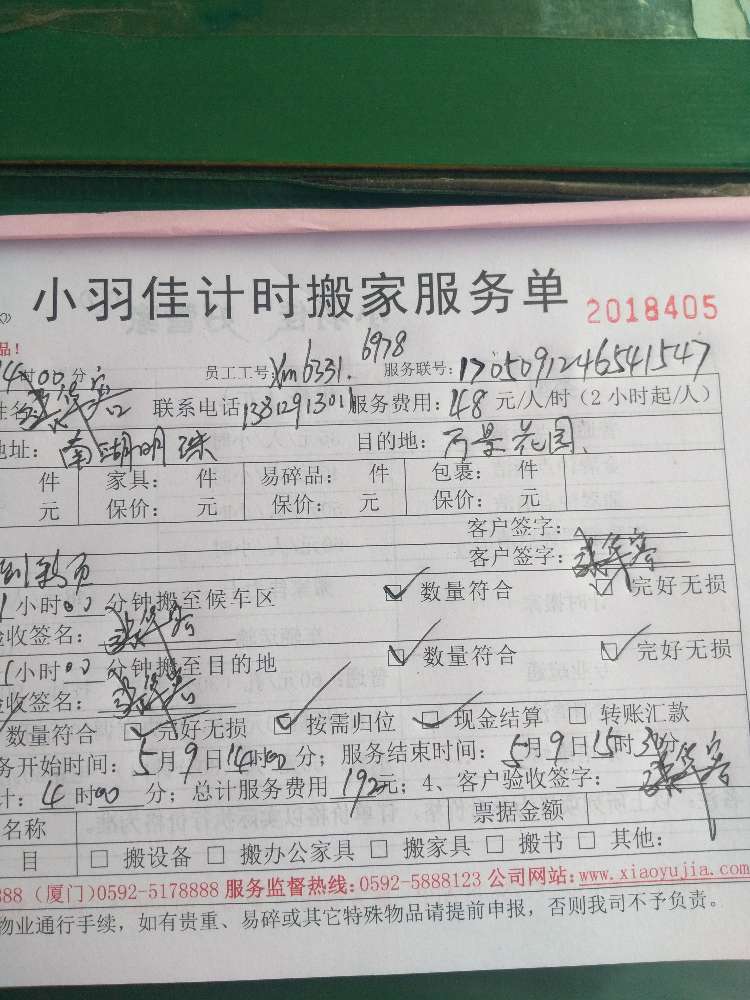 小羽佳计时搬家服务单 2018405
品!
14时00分 员工工号:Xm6331. 6978 服务联号:1705091246541547
姓名 联系电话 13312913011 服务费用:48元/人/时(2小时起/人)
地址:南湖明珠 目的地:万景花园
件 家具: 件 易碎品: 件 包裹: 件
元 保价: 元 保价: 元 保价: 元
客户签字:
客户签字:
小时00分钟搬至候车区 ☑ 数量符合 ☑ 完好无损
验收签名:
1小时00分钟搬至目的地 ☑ 数量符合 ☑ 完好无损
验收签名:
数量符合 ☑ 完好无损 ☑ 按需归位 ☑ 现金结算 □ 转账汇款
务开始时间:5月9日14时00分;服务结束时间:5月9日15时30分
计:4时00分;总计服务费用192元;4、客户验收签字:
名称 票据金额
目 □ 搬设备 □ 搬办公家具 □ 搬家具 □ 搬书 □ 其他:
888(厦门)0592-5178888 服务监督热线:0592-5888123 公司网站:www.xiaoyujia.com
物业通行手续,如有贵重、易碎或其它特殊物品请提前申报,否则我司不予负责。